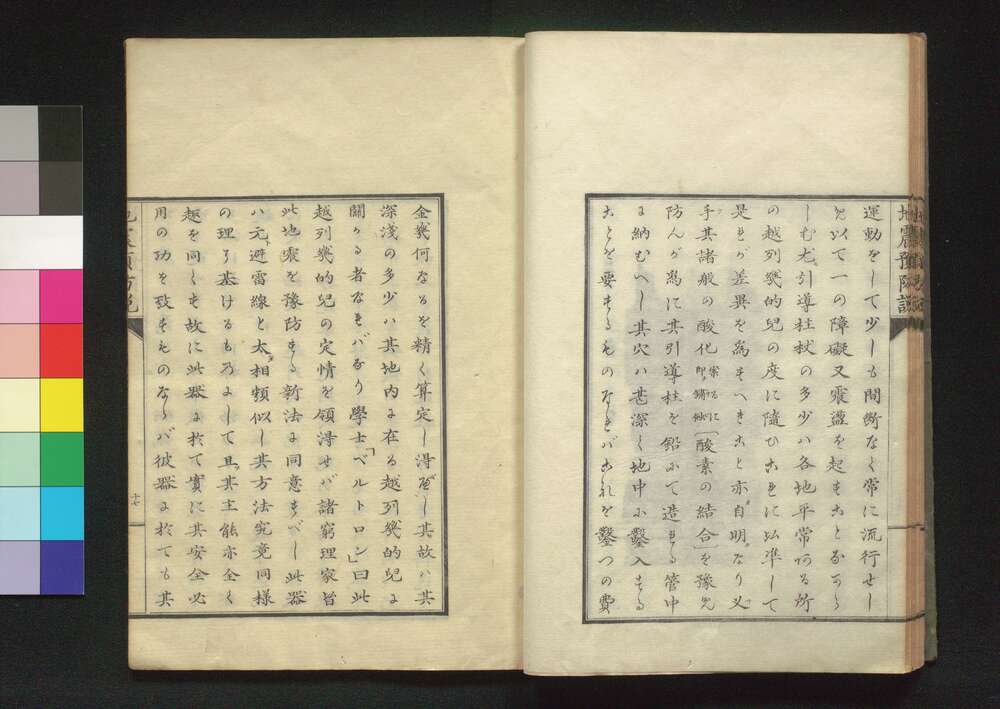 地震預防説
運動をして少しも間断なく常に流行せし
めバ以て一の障礙又震盪を起すことなから
しむ尤引導柱杖の多少ハ各地平常ある所
の越列幾的児の度に随ひこれに以準して
是れが差異を為すべきこと亦自明なり又
手其諸般の酸化案るに即錆鉜「酸素の結合」を豫め
防んが為に其引導柱を鉛にて造れる管中
に納むべし其穴ハ甚深く地中に鑿入する
ことを要するものなれバこれを鑿つの費
金幾何なるを精く算定し得べし其故ハ其
深浅の多少ハ其地内に在る越列幾的児に
關かる者なれバなり學士「ベルトロン」曰此
越列幾的児の定情を領得せバ諸窮理家皆
此地震を豫防する新法に同意すべし此器
ハ元避雷線と太相類似し其方法究竟同様
の理に基けるものにして且其主能亦全く
趣を同くす故に此器に於て實に其安全必
用の功を致すものならバ彼器に於ても其
地震預防説